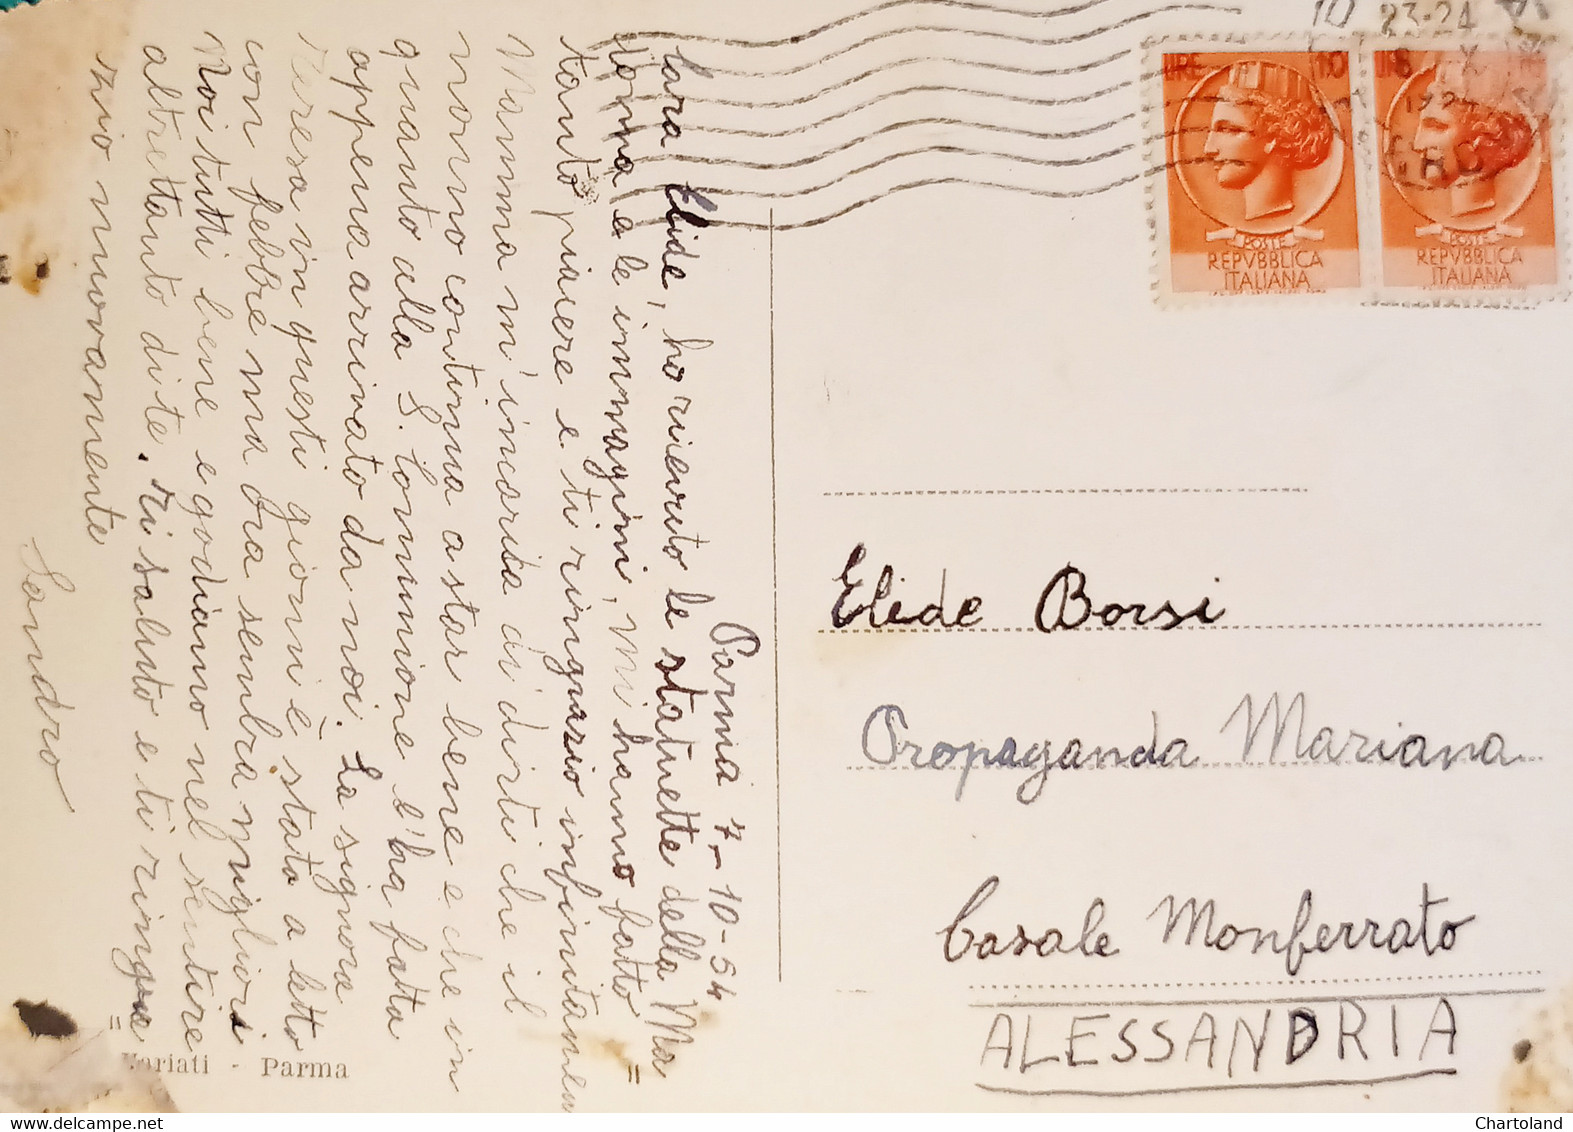 Parma 7-10-54
Cara Elide, ho ricevuto le statuette della Ma=
donna e le immagini, mi hanno fatto
tanto piacere e ti ringrazio infinitamen
Mamma m'incarica di dirti che il
nonno continua a star bene e che in
quanto alla S. Comunione l'ha fatta
appena arrivato da noi. La signora
Teresa in questi giorni è stata a letto
con febbre ma ora sembra migliori
Noi tutti bene e godiamo nel sentire
altrettanto di te. Ti saluto e ti ringra=
zio nuovamente
Sandro
Variati - Parma
23-24
LIRE 10
POSTE
REPVBBLICA
ITALIANA
POSTE
REPVBBLICA
ITALIANA
Elide Borsi
Propaganda Mariana
Casale Monferrato
ALESSANDRIA
Chartoland